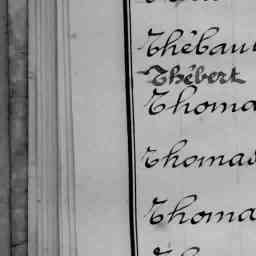 Thébau
Thébert
Thoma
Thomas
Thoma